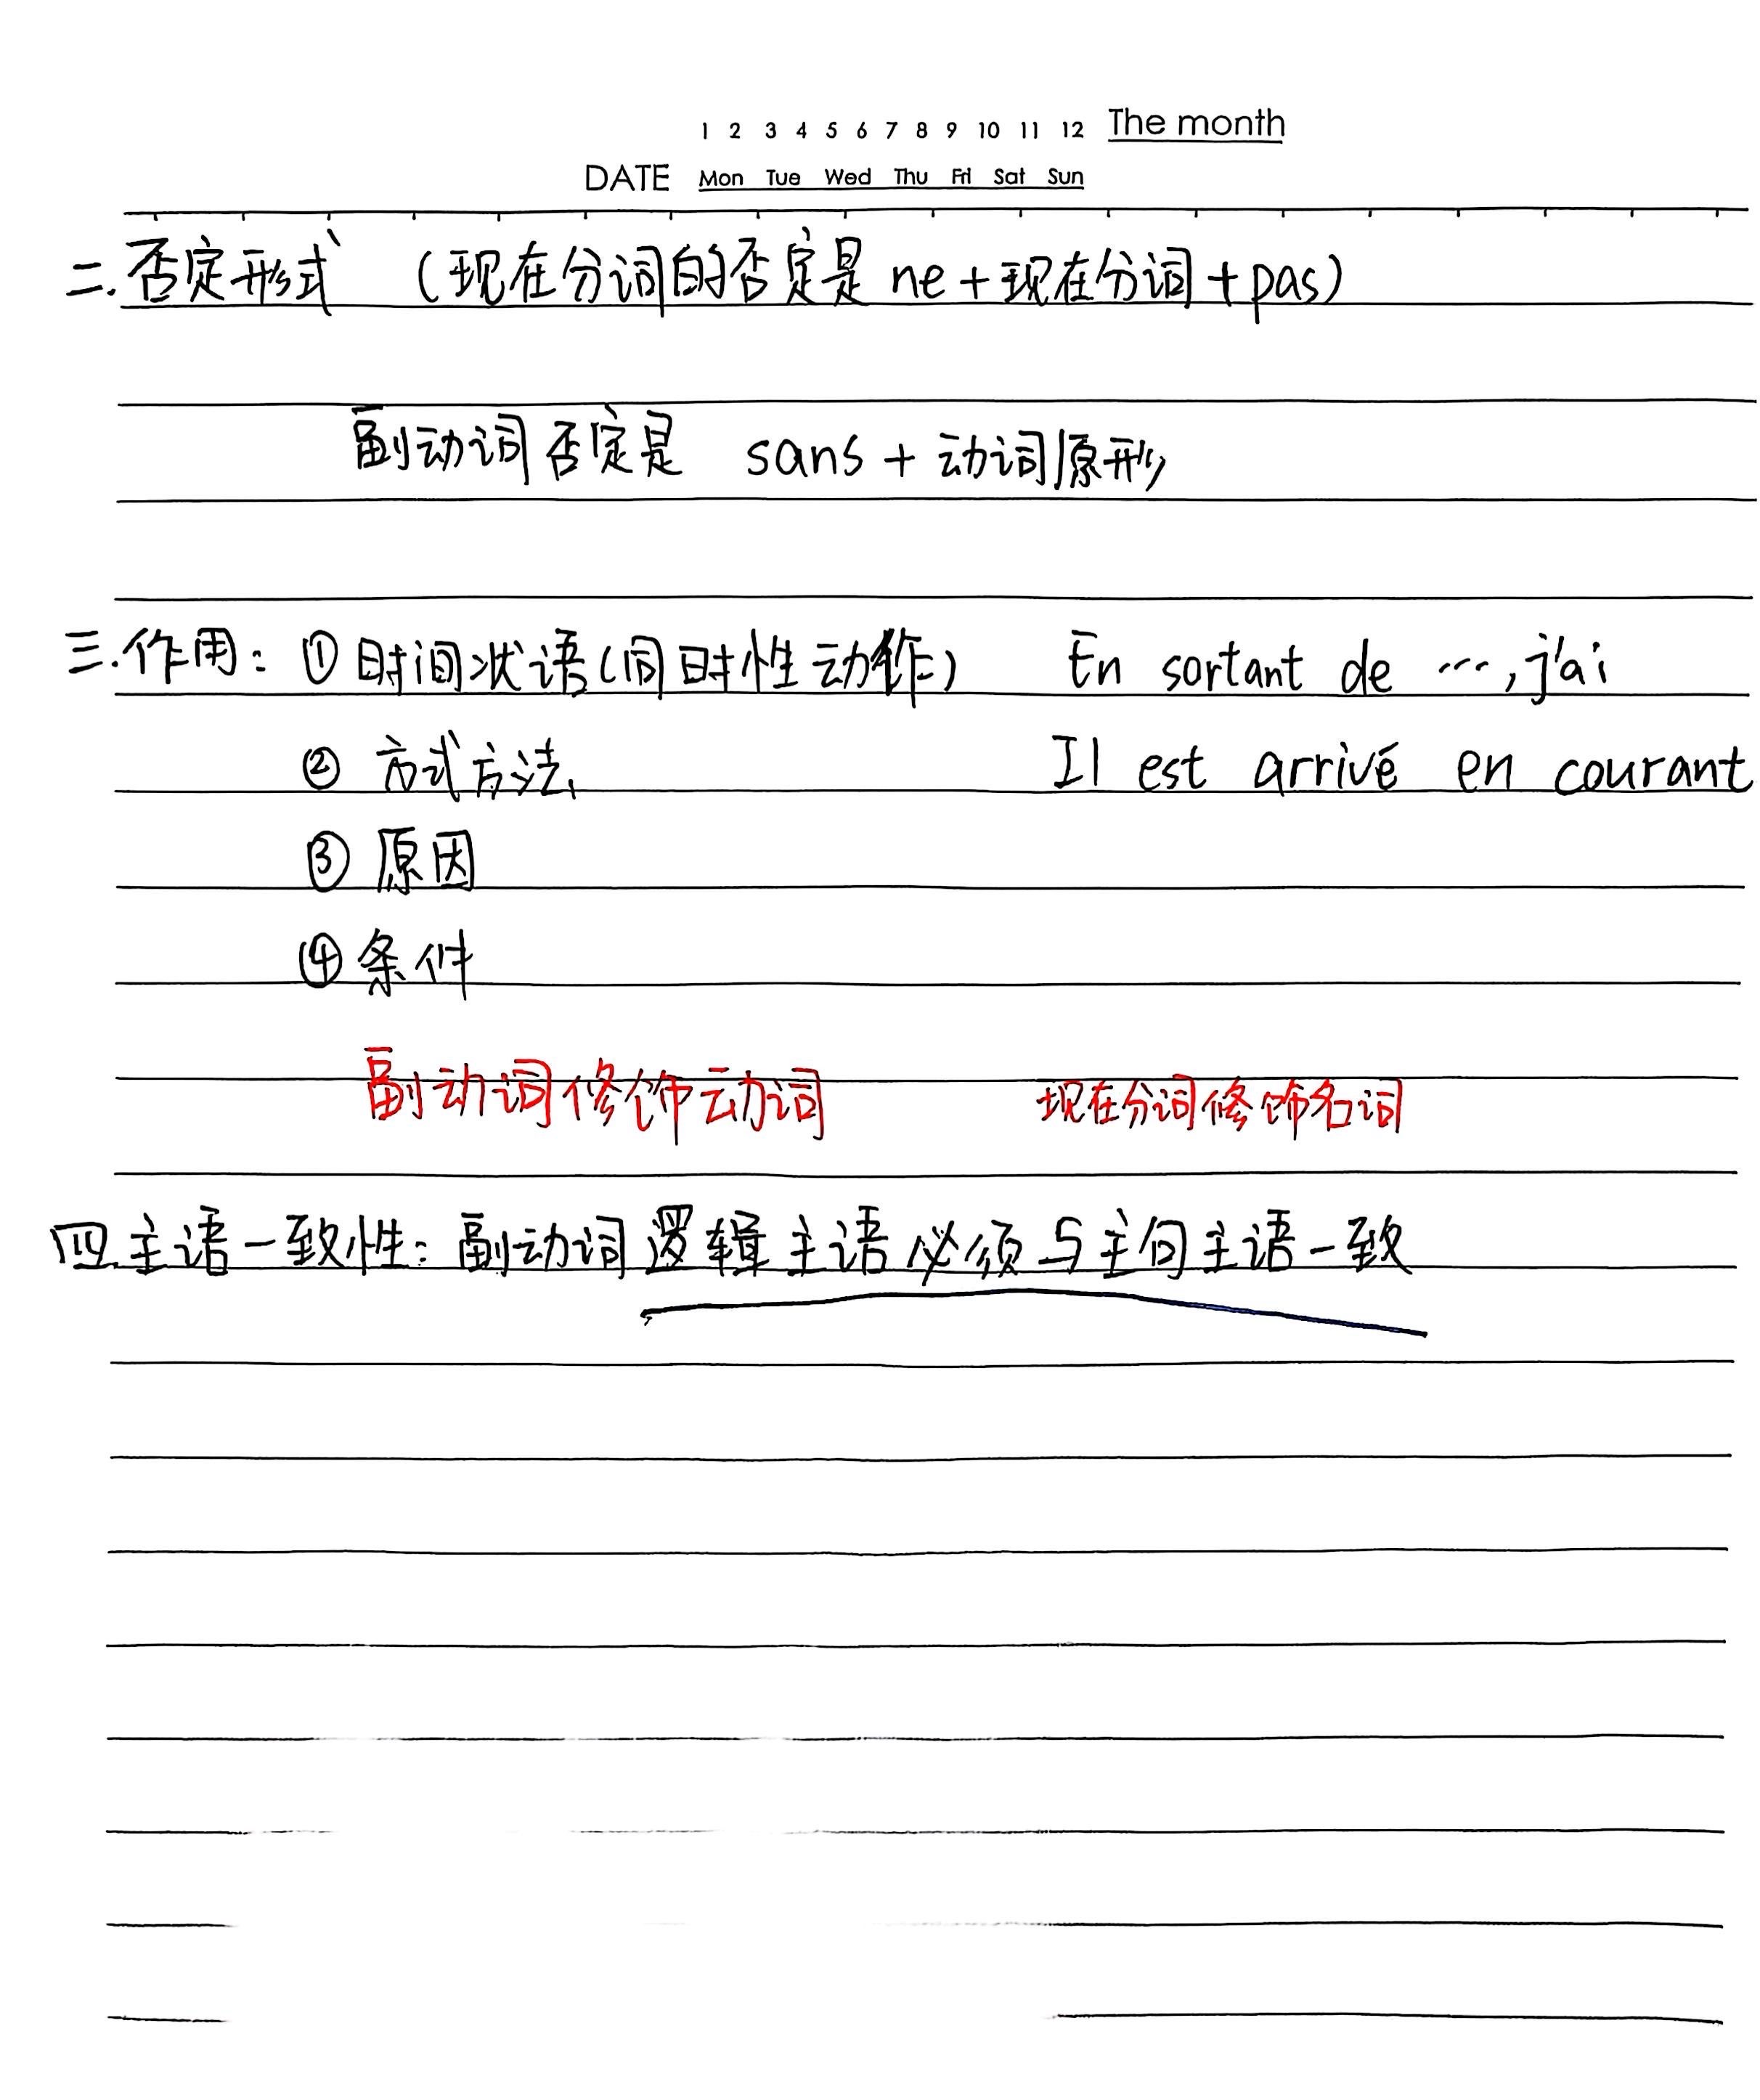 1 2 3 4 5 6 7 8 9 10 11 12 The month
DATE Mon Tue Wed Thu Fri Sat Sun
二.否定形式 (现在分词的否定是 ne+现在分词+pas)
副动词否定是 sans + 动词原形
三.作用: ①时间状语(同时性动作) En sortant de ···, j'ai
② 方式方法、 Il est arrivé en courant
③ 原因
④条件
副动词修饰动词 现在分词修饰名词
四.主语一致性: 副动词逻辑主语必须与主句主语一致